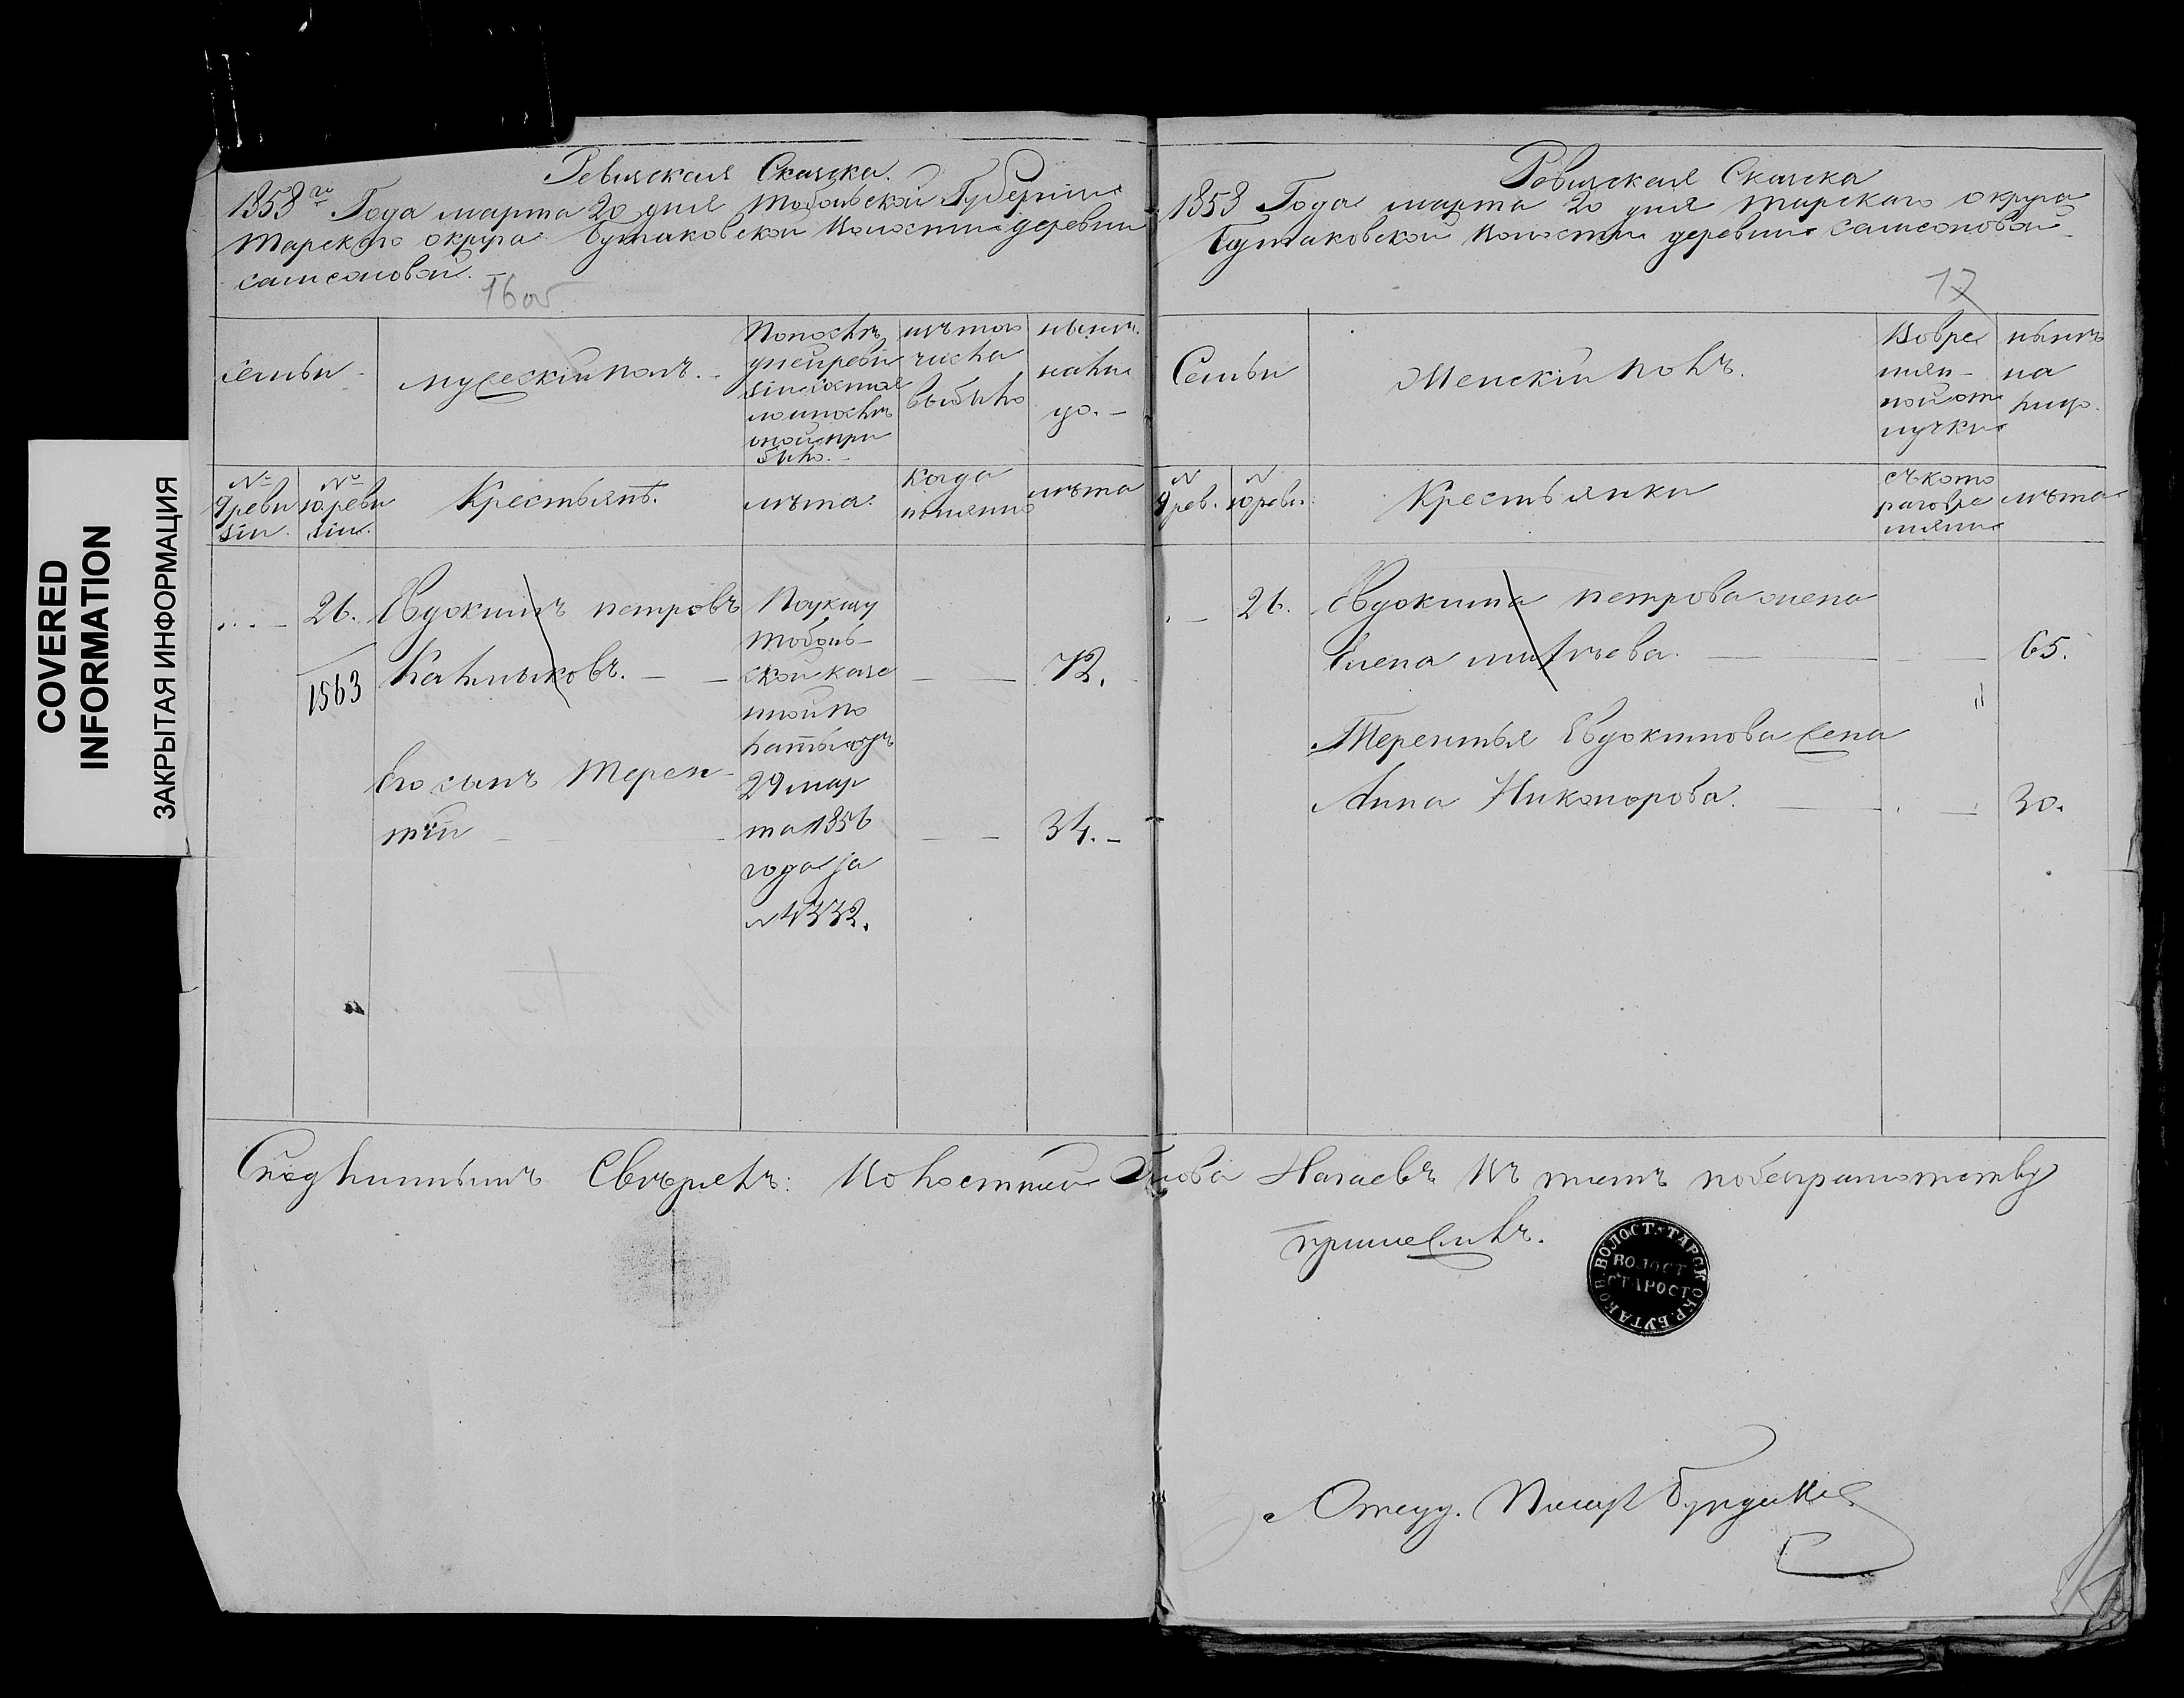 COVERED
INFORMATION
ЗАКРЫТАЯ ИНФОРМАЦИЯ
Ревизская Сказка.
1858го Года марта 20 дня Тобольской Губернии
Тарского округа Бутаковской Волости деревни
самсоновой.
16 об
семьи
мужескій полъ.
По последней ревизіи состояло и после оной прибыло.
изъ того числа выбыло
ныне на лицо.
№ 9 ревизіи.
№ 10 ревизіи.
Крестьянъ.
лѣта.
когда именно
лѣта
26.
1563
Евдокимъ петровъ
Калмыковъ.
72.
Его сынъ Терен-
тій
34.
По указу
тобольской казенной палаты отъ
29 мар
та 1856
года за
№ 4332.
Ревизская Сказка
1858 Года марта 20 дня Тарского округа
Бутаковской Волости деревни самсоновой
17
Семьи
Женскій полъ.
Во временной отлучки
нынѣ на лицо.
№ 9 рев.
№ 10 ревиз.
Крестьянки
съ котораго времяни
лѣта
26.
Евдокима петрова жена
Елена
65.
Терентья Евдокимова жена
Анна Никонорова.
30.
Съ подлиннымъ свѣрелъ: Волостной Голова Нагаевъ къ тимъ побезграмотству
приложилъ.
ТАРСК. ОКР. БУТАКОВ. ВОЛОСТ.
ВОЛОСТ
СТАРОСТ
Писарь